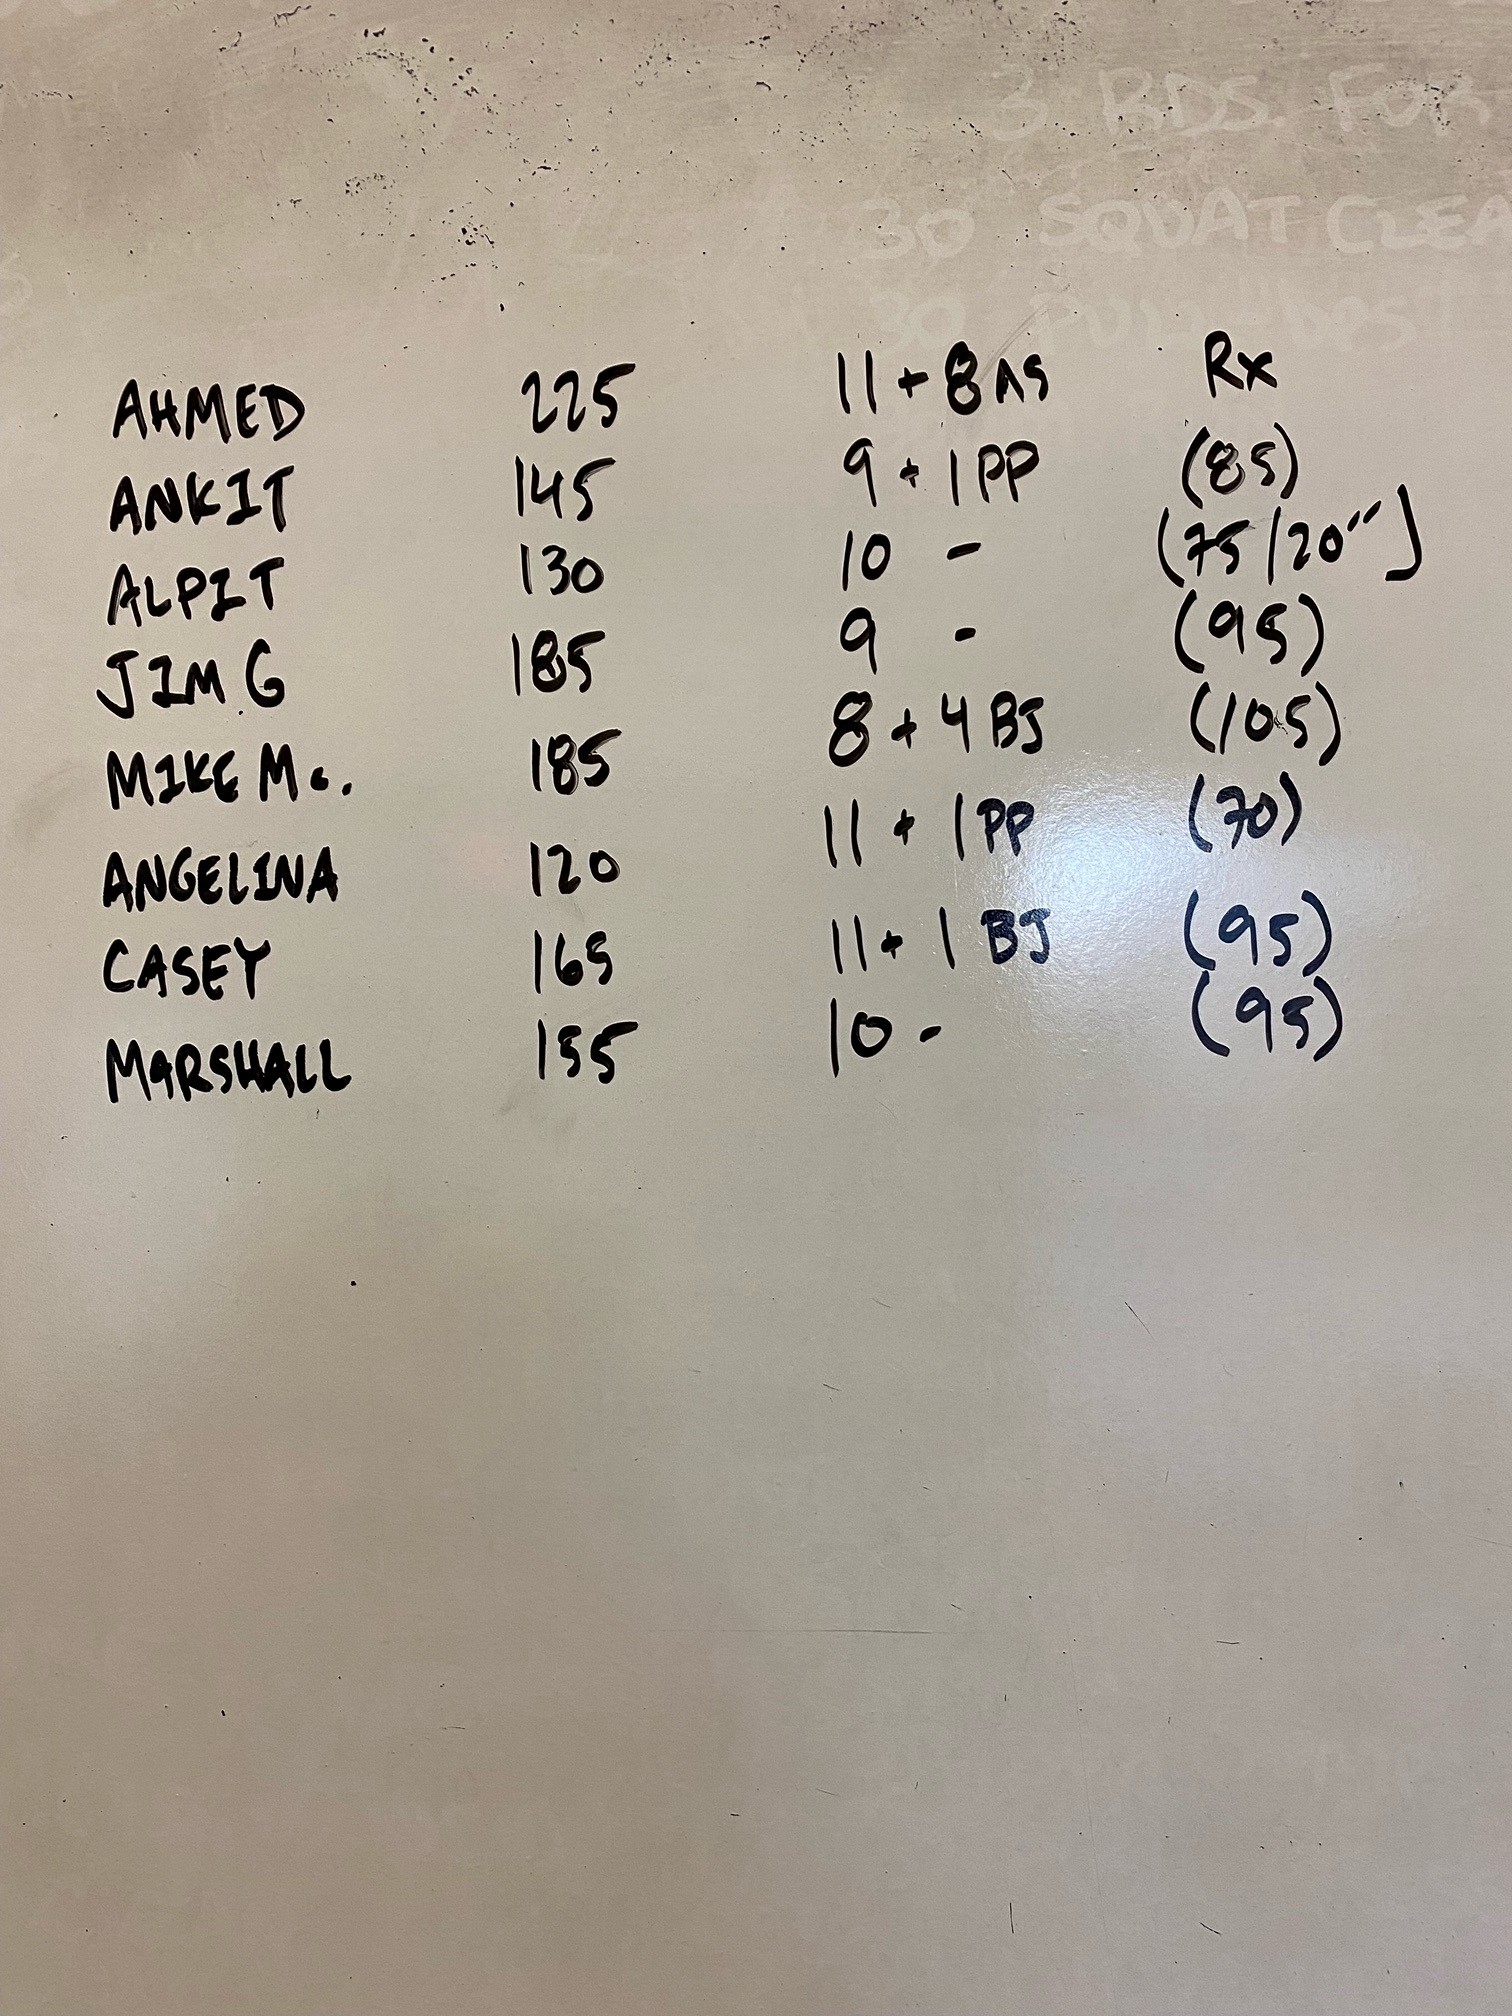 3 RDS. FOR
30 SQUAT CLEA
30 PULL-UPS
AHMED 225 11 + 8 AS Rx
ANKIT 145 9 + 1 PP (85)
ALPIT 130 10 - (75/20")
JIM G 185 9 - (95)
MIKE Mc. 185 8 + 4 BJ (105)
ANGELINA 120 11 + 1 PP (70)
CASEY 165 11 + 1 BJ (95)
MARSHALL 155 10 - (95)